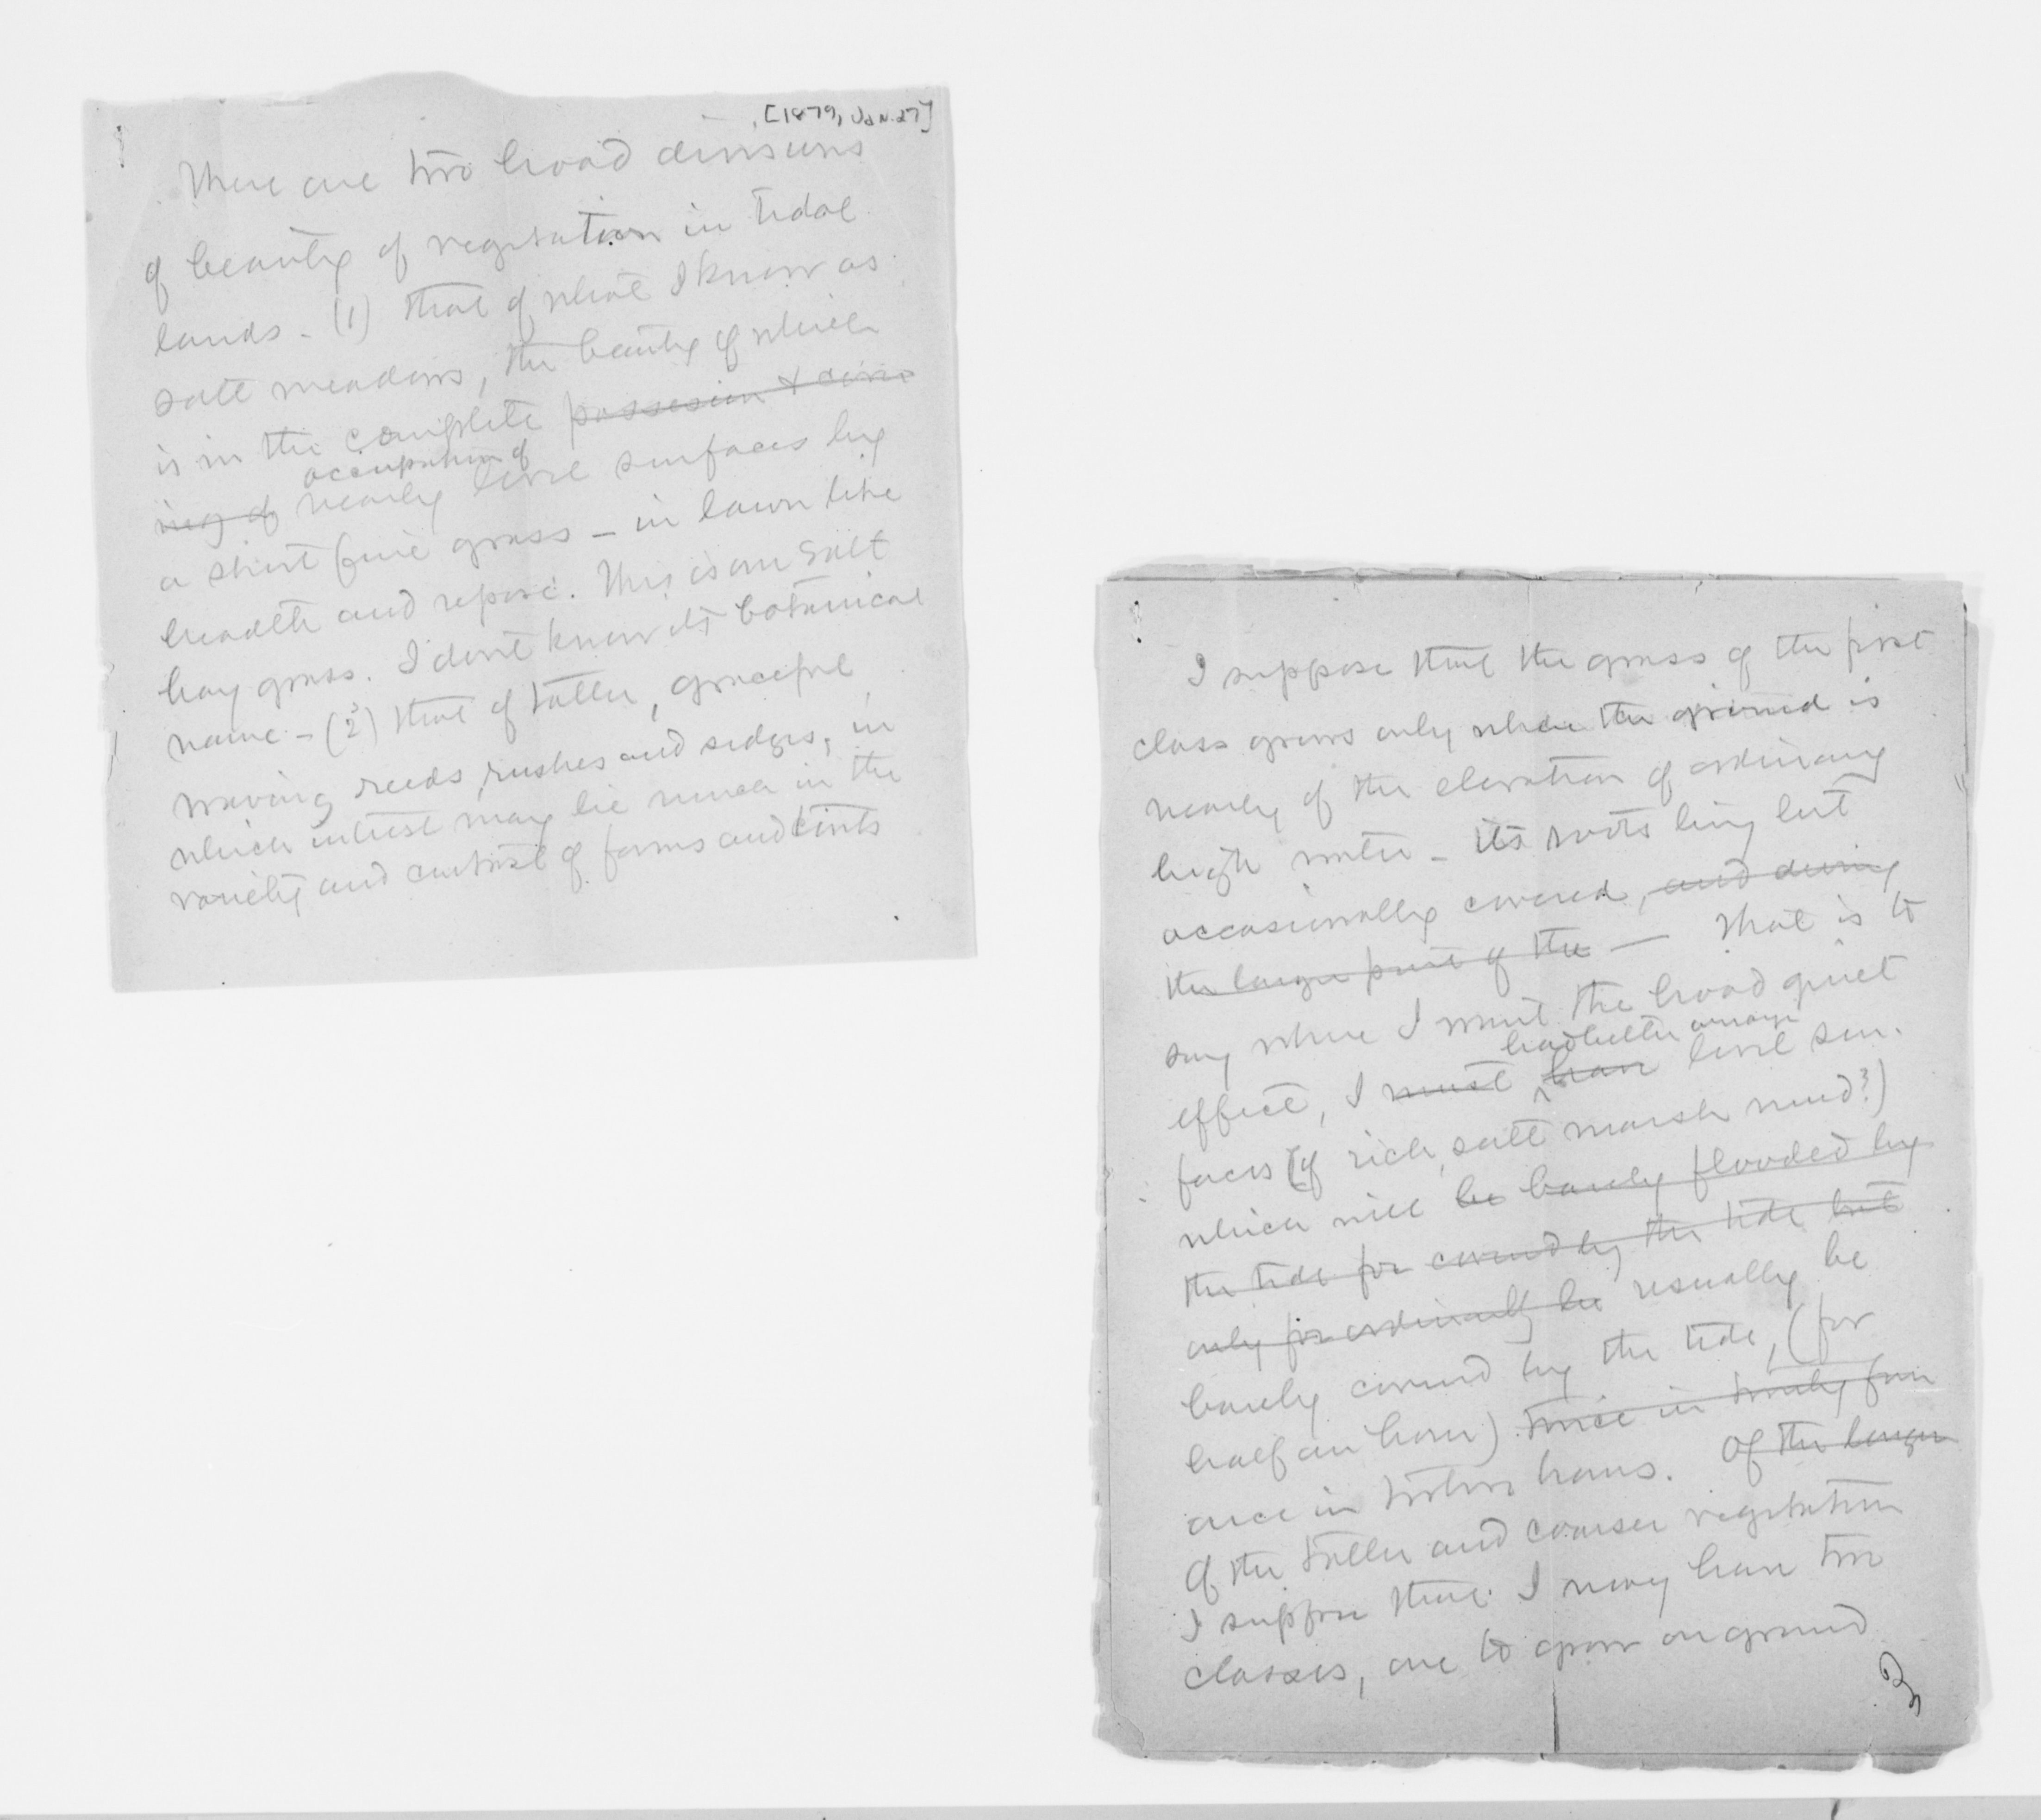 [1879, Jan. 27]
There are two broad divisions
of beauty of vegetation in tidal
lands - (1) that of what I know as
salt meadows, the beauty of which
is in the complete possession &
occupation of
ing of nearly level surfaces by
a short fine grass - in lawn like
breadth and repose. This is our salt
hay grass. I dont know its botanical
name - (2) that of taller, graceful
waving reeds, rushes and sedges, in
which interest may lie much in the
variety and contrast of forms and tints
I suppose that the grass of the first
class grows only where the ground is
nearly of the elevation of ordinary
high water - its roots being but
occasionally covered, and during
the larger part of the — That is to
say where I want the broad quiet
had better arrange
effect, I must have level sur-
faces (of rich, salt marsh mud?)
which will be barely flooded by
the tide for covered by the tide but
only for ordinarily be usually be
barely covered by the tide, (for
half an hour) twice in twenty four
once in twelve hours. Of the larger
Of the taller and coarser vegetation
I suppose that I may have two
classes, one to grow on ground